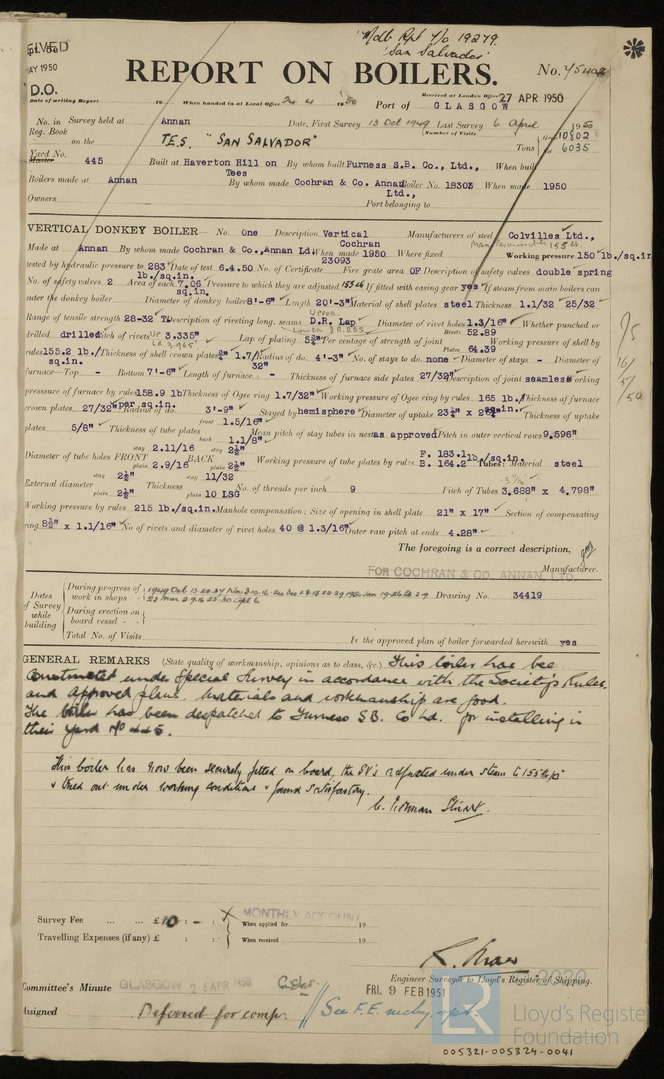 Mdb Rpt No 19279.
"San Salvador"
EIVED
MAY 1950
D.O.
REPORT ON BOILERS.
No. 75402
Received at London Office 27 APR 1950
Date of writing Report 19 When handed in at Local Office 24 4 1950 Port of GLASGOW
No. in Survey held at Annan Date, First Survey 13 Oct 1949 Last Survey 6 April 1950
Reg. Book (Number of Visits
on the T.E.S. "SAN SALVADOR" Tons 10802 6035
Yard No. 445 Built at Haverton Hill on Tees By whom built Furness S.B. Co., Ltd., When built
Boilers made at Annan By whom made Cochran & Co. Annan Ltd., Boiler No. 18303 When made 1950
Owners Port belonging to
VERTICAL DONKEY BOILER— No. One Description Vertical Cochran Manufacturers of steel Colvilles Ltd.,
Made at Annan By whom made Cochran & Co., Annan Ld. When made 1950 Where fixed Working pressure 150 lb./sq.in
tested by hydraulic pressure to 283 lb./sq.in. Date of test 6.4.50 No. of Certificate 23093 Fire grate area OF Description of safety valves double spring
No. of safety valves 2 Area of each 7.06 sq.in. Pressure to which they are adjusted 155 lb If fitted with easing gear yes If steam from main boilers can
enter the donkey boiler Diameter of donkey boiler 8'-6" Length 20'-3" Material of shell plates steel Thickness 1.1/32 25/32
Range of tensile strength 28-32 T Description of riveting long. seams Upper D.R. Lap Diameter of rivet holes 1.3/16" Whether punched or
drilled drilled Pitch of rivets 3.335" Lap of plating 5¾" Per centage of strength of joint Rivets 52.89 Plates 64.39 Working pressure of shell by
rules 155.2 lb./sq.in. Thickness of shell crown plates 1.7/32" Radius of do. 4'-3" No. of stays to do. none Diameter of stays - Diameter of
furnace—Top - Bottom 7'-6" Length of furnace - Thickness of furnace side plates 27/32" Description of joint seamless Working
pressure of furnace by rules 158.9 lb per sq.in. Thickness of Ogee ring 1.7/32" Working pressure of Ogee ring by rules 165 lb./sq.in. Thickness of furnace
crown plates 27/32" Radius of do. 3'-9" Stayed by hemisphere Diameter of uptake Thickness of uptake
plates 5/8" Thickness of tube plates front 1.5/16" back 1.1/8" Mean pitch of stay tubes in nests as approved Pitch in outer vertical rows 9.596"
Diameter of tube holes FRONT stay 2.11/16 plain 2.9/16 BACK stay 2½" plain 2½" Working pressure of tube plates by rules F. 183.1 lb/sq.in. B. 164.2 Tubes: Material steel
External diameter stay 2½" plain 2½" Thickness stay 11/32 plain 10 LSG No. of threads per inch 9 Pitch of Tubes 3.688" x 4.798"
Working pressure by rules 215 lb./sq.in. Manhole compensation: Size of opening in shell plate 21" x 17" Section of compensating
ring 8½" x 1.1/16" No of rivets and diameter of rivet holes 40 @ 1.3/16" Outer row pitch at ends 4.28"
The foregoing is a correct description,
FOR COCHRAN & CO. ANNAN, LTD Manufacturer.
Dates of Survey while building
During progress of work in shops - -
During erection on board vessel - -
Total No. of Visits
Drawing No. 34419
Is the approved plan of boiler forwarded herewith yes
GENERAL REMARKS (State quality of workmanship, opinions as to class, &c.) This boiler has bee
constructed under Special Survey in accordance with the Society's Rules
and approved plans. Materials and workmanship are good.
The boiler has been despatched to Furness SB. Co Ltd. for installing in
their yard No 445.
This boiler has now been securely fitted on board, the SV's adjusted under steam to 155 lb/□"
& tried out under working conditions & found satisfactory.
Survey Fee ... ... £10 : - : MONTHLY ACCOUNT When applied for 19
Travelling Expenses (if any) £ : : When received 19
Engineer Surveyor to Lloyd's Register of Shipping.
Committee's Minute GLASGOW 25 APR 1950 FRI. 9 FEB 1951
Assigned Deferred for comp. // See F.E. mchy. rpt.
Lloyd's Register
Foundation
005321-005324-0041